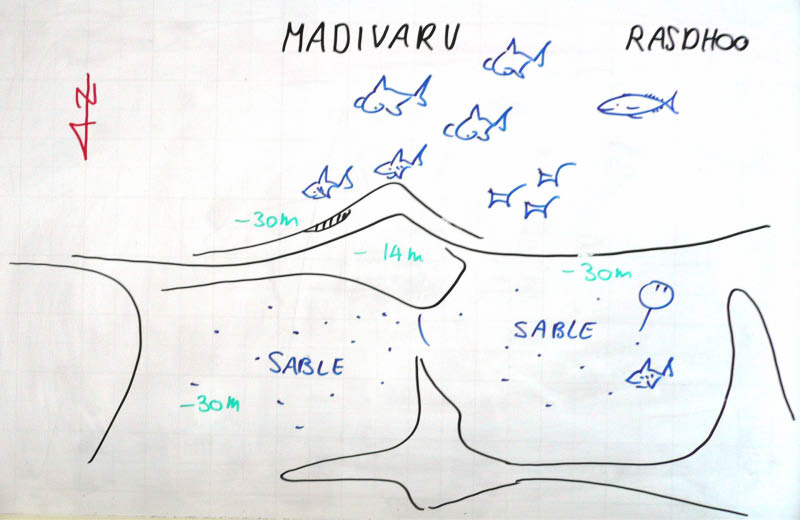 MADIVARU RASDHOO
N
-30m
-14m
-30m
SABLE
SABLE
-30m